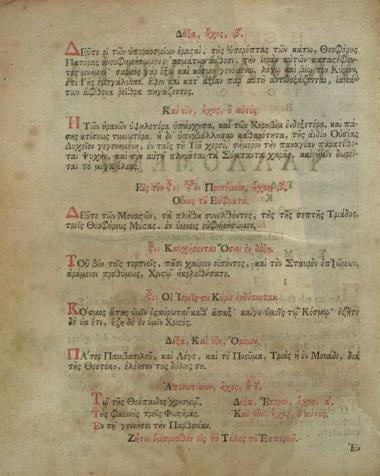 Δόξα, ἦχος, β΄.
Δεῦτε οἱ τῶν ὑπερκοσμίων ἐρασταὶ, τοὺς ὑπερόπτας τῶν κάτω, Θεοφόρους
Πατέρας ἀνευφημήσωμεν ᾄσμασιν
μνήμην σαρκὸς γὰρ ἔξω καὶ κόσμου γενόμενοι, λόγῳ καὶ βίῳ τὸν Κύριον,
ἐπὶ Γῆς ἐμεγάλυναν, ὅθεν καὶ κατ᾽ ἄξίαν παρ᾽ αὐτοῦ ἀντιδοξάζονται, ἰαμάτων
ἄφθονα ῥεῖθρα πηγάζοντες.
Καὶ νῦν, ἦχος, ὁ αὐτός.
Ἡ Τῶν οὐρανῶν ὑψηλοτέρα ὑπάρχουσα, καὶ τῶν Χερουβὶμ ἐνδοξοτέρα, καὶ πάσης
κτίσεως τιμιωτέρα, ἡ δι᾽ ὑπερβάλλουσαν καθαρότητα, τῆς ἀϊδίου Οὐσίας
Δοχεῖον γεγενημένη, ἐν ταῖς τοῦ Υἱοῦ χερσὶ, σήμερον τὴν παναγίαν παρατίθεται
Ψυχὴν, καὶ σὺν αὐτῇ πληροῦται τὰ Σύμπαντα χαρᾶς, καὶ ἡμῖν δωρεῖται
τὸ μέγα ἔλεος.
Εἰς τὸν Προσόμοια, ἦχος, β΄.
Οἶκος τοῦ Εὐφραθᾶ.
Δεῦτε τῶν Μοναστῶν, τὰ πλήθη συνελθόντες, τοὺς τῆς σεπτῆς Τριάδος,
τρεῖς Θεοφόρους Μύστας, ἐν ὕμνοις εὐφημήσωμεν.
Καυχήσονται Ὅσιοι ἐν δόξῃ.
Τοῦ βίου τοῖς τερπνοῖς, πᾶσι χαίρειν εἰπόντες, καὶ τὸν Σταυρὸν ἐπ᾽ ὤμων,
ἀράμενοι προθύμως, Χριστῷ ἠκολουθήσατε.
Οἱ Ἱερεῖς σου Κύριε ἐνδύσονται.
Κόσμος ἅπας ὑμῖν ἐσταύρωται καθ᾽ ἅπαξ καί γε ὑμεῖς τῷ Κόσμῳ ἐζῆτε
δὲ οὐκ ἔτι, ἔζη δὲ ἐν ὑμῖν Χριστός.
Δόξα, Καὶ νῦν, Ὅμοιον.
Πάτερ Παμβασιλεῦ, καὶ Λόγε, καὶ τὸ Πνεῦμα, Τριὰς ἡ ἐν Μονάδι, διὰ
τῆς Θεοτόκου, ἐλέησον τοὺς δούλους σου.
Ἀπολυτίκιον, ἦχος,
Τῷ τῆς Θεόπαιδος
Τοὺς Φαεινοὺς τρεῖς Φωστῆρας.
Ἐν τῇ γεννήσει τὴν Παρθενίαν.
Δόξα, Ἕτερον, ἦχος, α΄.
Καὶ νῦν, ἦχος, ὁ αὐτός.
Ζήτει ἔμπροσθεν εἰς τὸ Τέλος τοῦ Ἑσπερινοῦ.
Ἐν